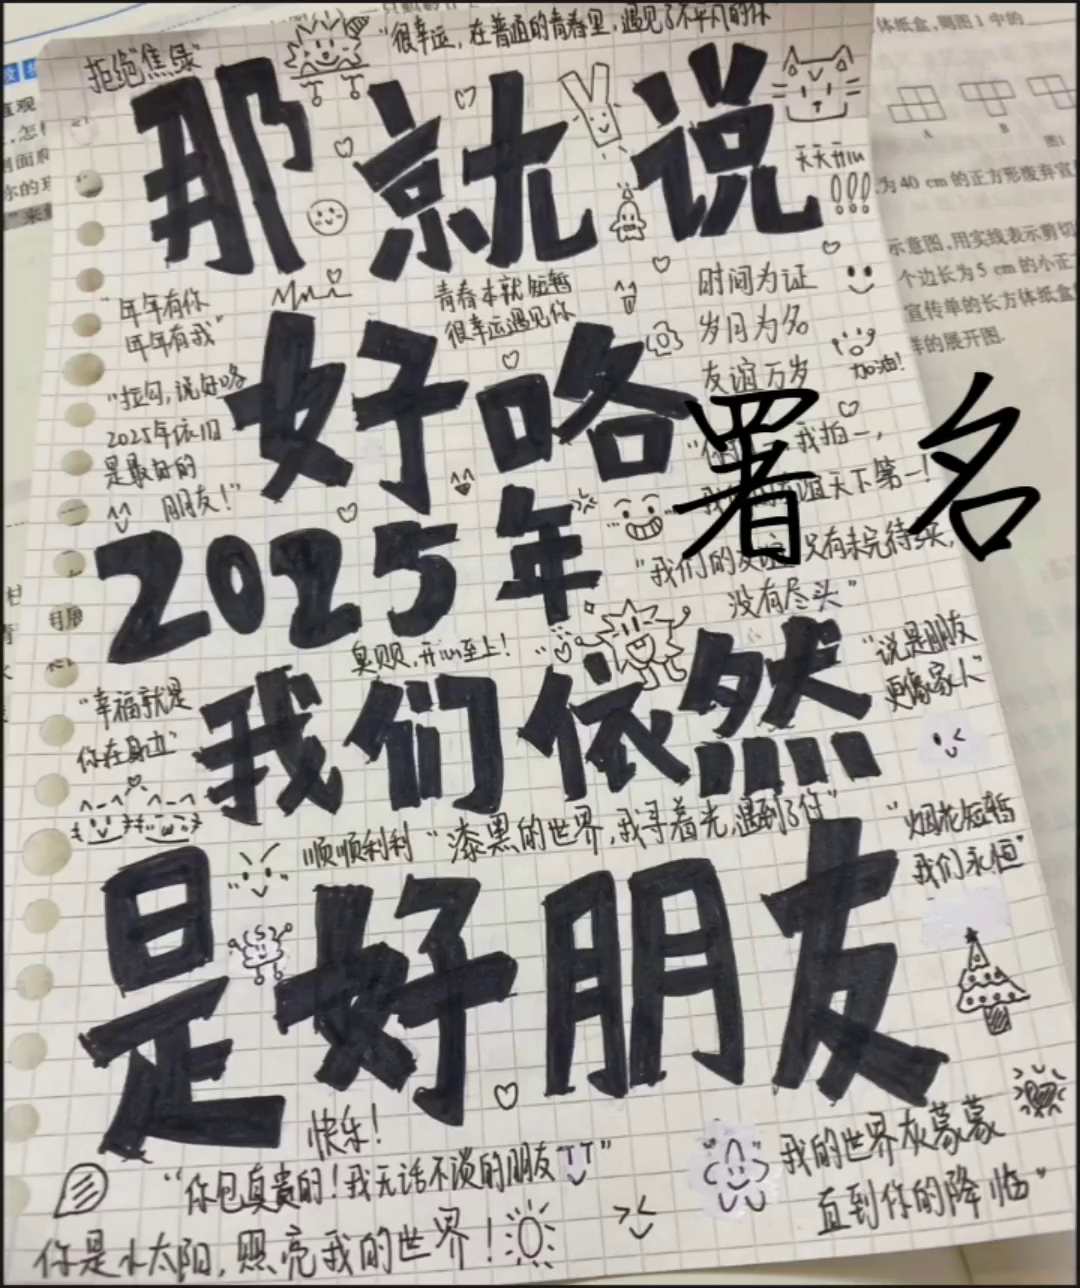 拒绝“焦绿”
“很幸运，在普通的青春里，遇见了不平凡的你”
那就说
天天开iu
!!!
“年年有你
年年有我”
青春本就短暂
很幸运遇见你
时间为证
岁月为名
友谊万岁
加油！
好咯
“拉勾，说好咯
2025年依旧
是最好的
朋友！”
我拍一，
谊天下第一！
署名
“我们的友谊只有未完待续，
没有尽头”
2025年
臭贝贝，开iu至上！
“说是朋友
更像家人”
“幸福就是
你在身边”
我们依然
顺顺利利
“漆黑的世界，我寻着光，遇到了你”
“烟花短暂
我们永恒”
是好朋友
快乐！
“你包真贵的！我无话不谈的朋友”
我的世界灰蒙蒙
直到你的降临”
你是小太阳，照亮我的世界！
体纸盒，则图1中的
A
B
图1
为40 cm的正方形废弃宣
示意图，用实线表示剪切
个边长为5 cm的小正方
宣传单的长方体纸盒
样的展开图.